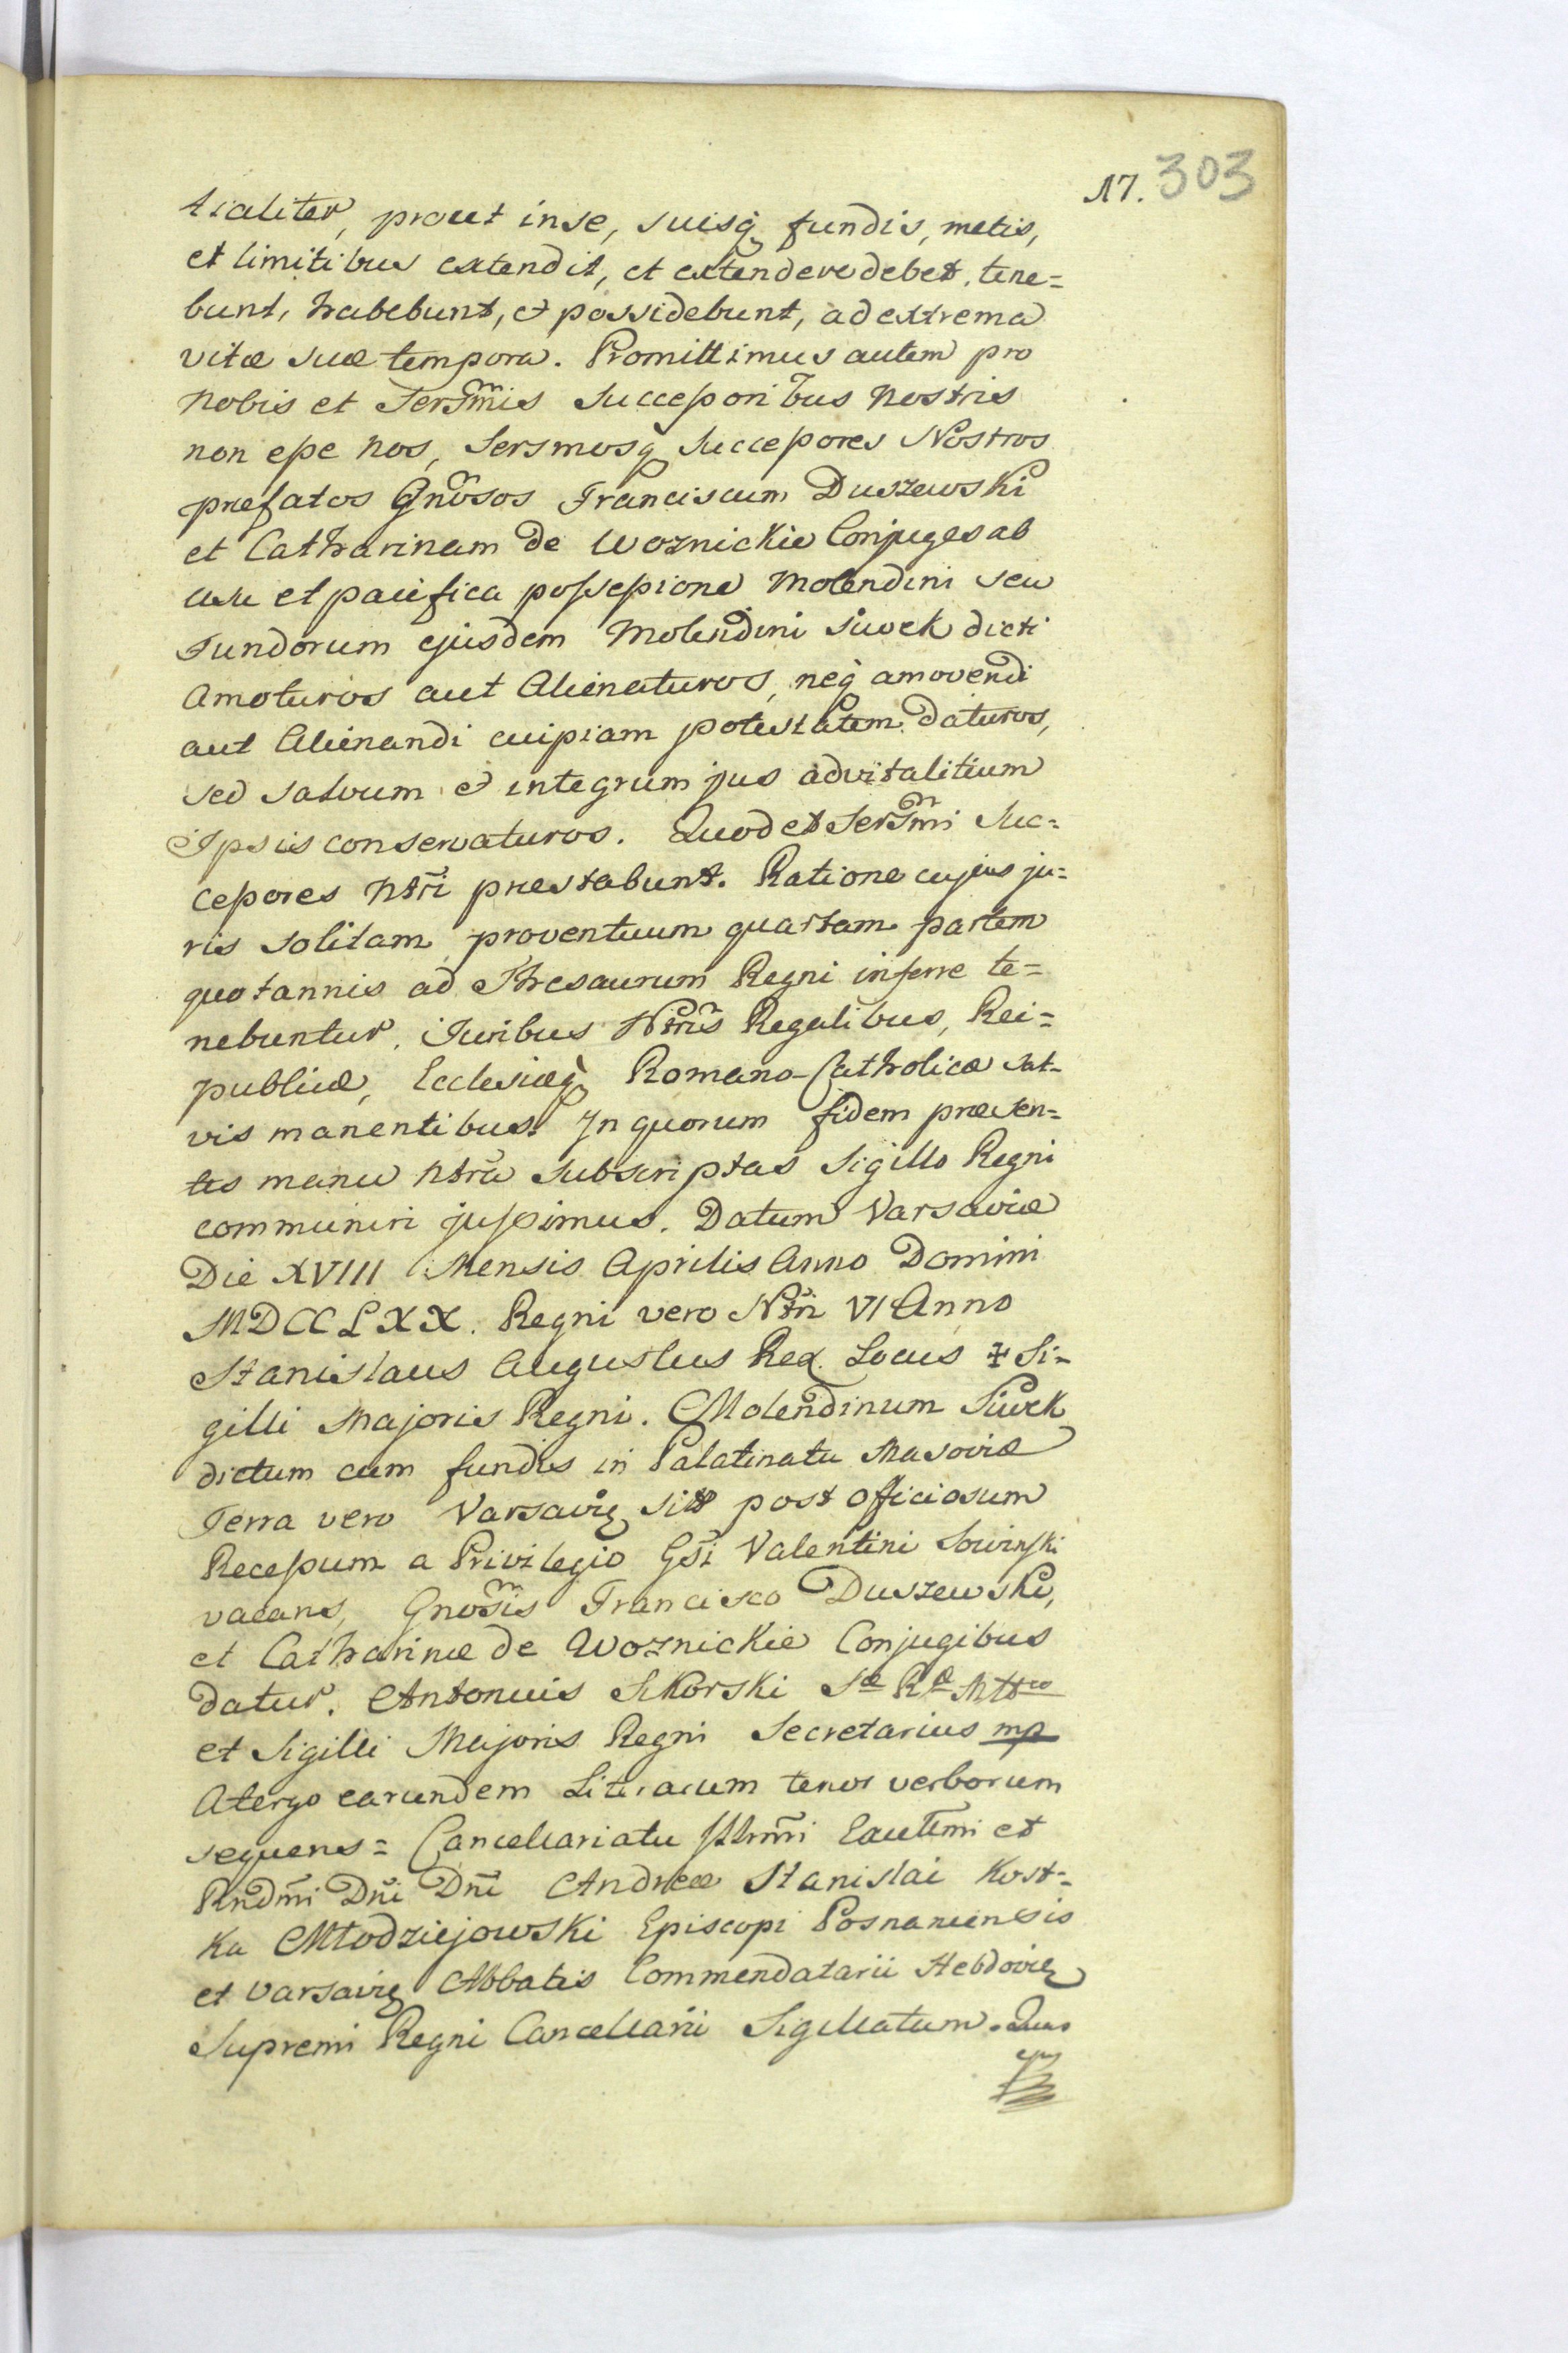 17. 303
tialiter, prout in se, suisq fundis, metis,
et limitibus extendit, et extendere debet, tene=
bunt, habebunt, et possidebunt, ad extrema
vitæ suæ tempora. Promittimus autem pro
Nobis et Serſm̃is Succeſsoribus Nostris
non eſse Nos, Sersmosq Succeſsores Nostros
præfatos Gnõsos Franciscum Duszewski
et Catharinam de Woznickie Conjuges ab
usu et pacifica poſseſsione Molendini seu
Fundorum ejusdem Molendini Siwek dicti
Amoturos aut Alienaturos, neq amovendi
aut Alienandi cuipiam potestatem daturos,
sed salvum et integrum jus advitalitium
Ipsis conservaturos. Quod et Serſm̃i Suc=
ceſsores Ntrĩ præstabunt. Ratione cujus ju=
ris solitam proventuum quartam partem
quotannis ad Thesaurum Regni inferre te=
nebuntur. Juribus Ntrĩs Regalibus, Rei=
publicæ, Ecclesiæq Romano-Catholicæ sal-
vis manentibus. In quorum fidem præsen=
tes manu Ntrã Subscriptas Sigillo Regni
communiri juſsimus. Datum Varsaviæ
Die XVIII Mensis Aprilis Anno Domini
MDCCLXX. Regni vero Ntrĩ VI Anno
Stanislaus Augustus Rex. Locus ✝ Si=
gilli Majoris Regni. Molendinum Siwek
dictum cum fundis in Palatinatu Masoviæ
Terra vero Varsavię sitt post officiosum
Receſsum a Privilegio Gsĩ Valentini Sowinski
vacans, Gnosĩs Francisco Duszewski,
et Catharinæ de Woznickie Conjugibus
datur. Antonius Sikorski Sæ Ræ Mttis
et Sigilli Majoris Regni Secretarius mp
Atergo earundem Literarum tenor verborum
sequens = Cancellariatu Illrm̃i Excllm̃i et
Rndm̃i Dnĩ Dnĩ Andreæ Stanislai Kost=
ka Młodziejowski Episcopi Posnaniensis
et Varsavię Abbatis Commendatarii Hebdovię
Supremi Regni Cancellarii Sigillatum. Quas